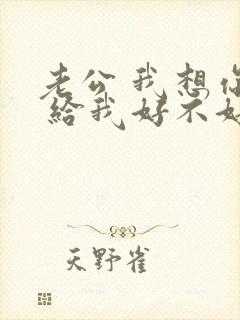 老公我想你
給我好不好
天野雀